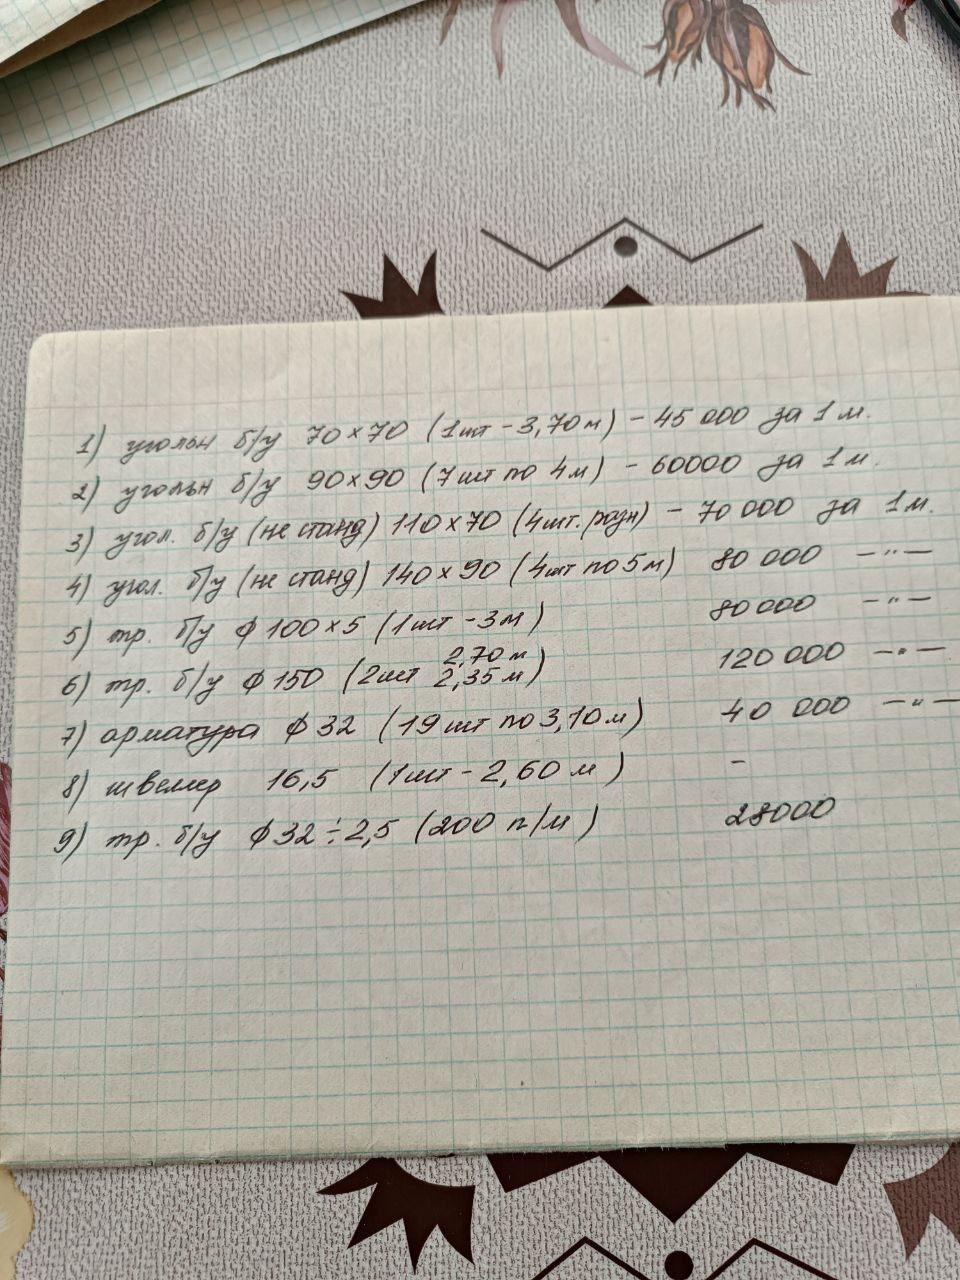 1) угольн б/у 70×70 (1шт - 3,70м) - 45 000 за 1 м.
2) угольн б/у 90×90 (7шт по 4м) - 60000 за 1 м.
3) угол. б/у (не станд) 110×70 (4шт. разн) - 70 000 за 1 м.
4) угол. б/у (не станд) 140×90 (4шт по 5м) 80 000 -"-
5) тр. б/у ф 100×5 (1шт - 3м) 80000 -"-
6) тр. б/у ф 150 (2шт 2,70 м 2,35 м) 120 000 -"-
7) арматура ф 32 (19 шт по 3,10м) 40 000 -"-
8) швеллер 16,5 (1шт - 2,60 м) -
9) тр. б/у ф 32 ÷ 2,5 (200 п/м) 28000